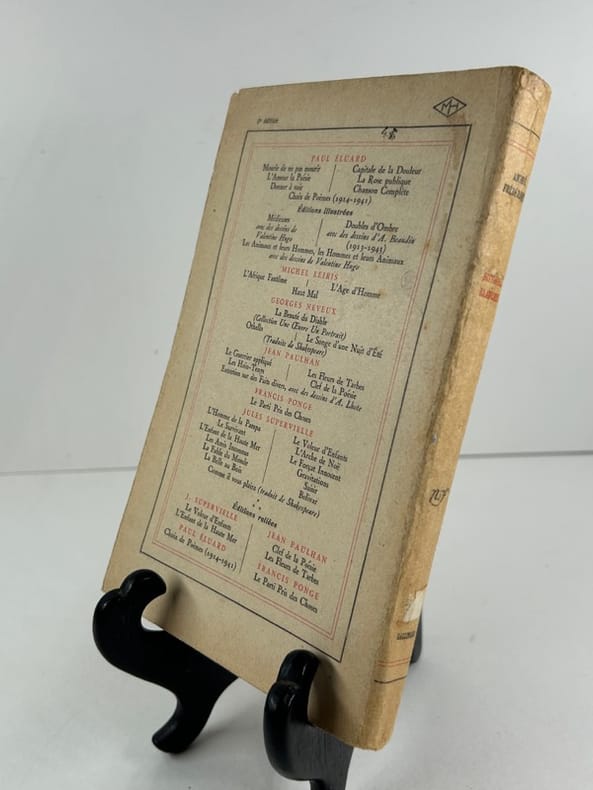 MH
6e édition
PAUL ÉLUARD
Mourir de ne pas mourir
L'Amour la Poésie
Donner à voir
Capitale de la Douleur
La Rose publique
Chanson Complète
Choix de Poèmes (1914-1941)
Éditions illustrées
Médieuses
avec des dessins de
Valentine Hugo
Doubles d'Ombre
avec des dessins d'A. Beaudin
(1913-1943)
Les Animaux et leurs Hommes, les Hommes et leurs Animaux
avec des dessins de Valentine Hugo
MICHEL LEIRIS
L'Afrique Fantôme
L'Age d'Homme
Haut Mal
GEORGES NEVEUX
La Beauté du Diable
(Collection Une Œuvre Un Portrait)
Othello
Le Songe d'une Nuit d'Été
(Traduits de Shakespeare)
JEAN PAULHAN
Le Guerrier appliqué
Les Hain-Tenys
Les Fleurs de Tarbes
Clef de la Poésie
Entretien sur des Faits divers, avec des dessins d'A. Lhote
FRANCIS PONGE
Le Parti Pris des Choses
JULES SUPERVIELLE
L'Homme de la Pampa
Le Survivant
L'Enfant de la Haute Mer
Les Amis Inconnus
La Fable du Monde
La Belle au Bois
Le Voleur d'Enfants
L'Arche de Noé
Le Forçat Innocent
Gravitations
Saisir
Bolivar
Comme il vous plaira (traduit de Shakespeare)
Éditions reliées
J. SUPERVIELLE
Le Voleur d'Enfants
L'Enfant de la Haute Mer
PAUL ÉLUARD
Choix de Poèmes (1914-1941)
JEAN PAULHAN
Clef de la Poésie
Les Fleurs de Tarbes
FRANCIS PONGE
Le Parti Pris des Choses
nrf